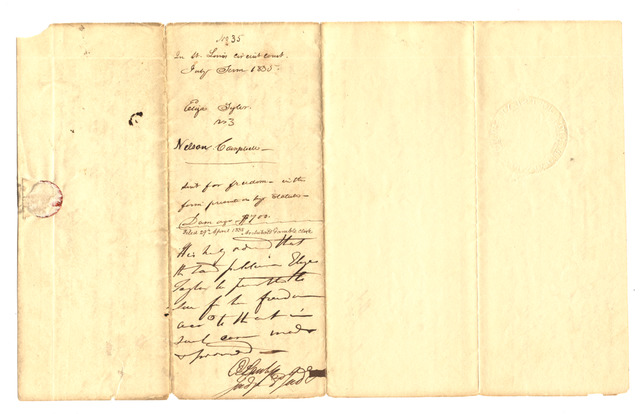 No 35
In St. Louis circuit court.
July Term 1835
Eliza Tyler.
vs
Nelson Campbell
suit for freedom - in the
form prescribed by statute -
Damage $700.
Filed 29th April 1835 Archibald Gamble clerk
It is ordered that
the said petitioner Eliza
to
sue for her freedom
to that in
such case made
& provided
Judge